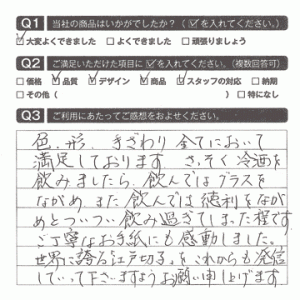 Q1 当社の商品はいかがでしたか？（☑を入れてください。）
☑大変よくできました □よくできました □頑張りましょう
Q2 ご満足いただけた項目に☑を入れてください。（複数回答可）
□価格 ☑品質 ☑デザイン ☑商品 ☑スタッフの対応 □納期
□その他（ ）□特になし
Q3 ご利用にあたってご感想をおよせください。
色、形、きざわり全てにおいて
満足しております さっそく冷酒を
飲みましたら、飲んではグラスを
ながめ、また飲んでは徳利をなが
めとついつい飲み過ぎてしまった程です
ご丁寧なお手紙にも感動しました。
世界に誇る江戸切子をこれからも発信
していって下さいますようお願い申し上げます